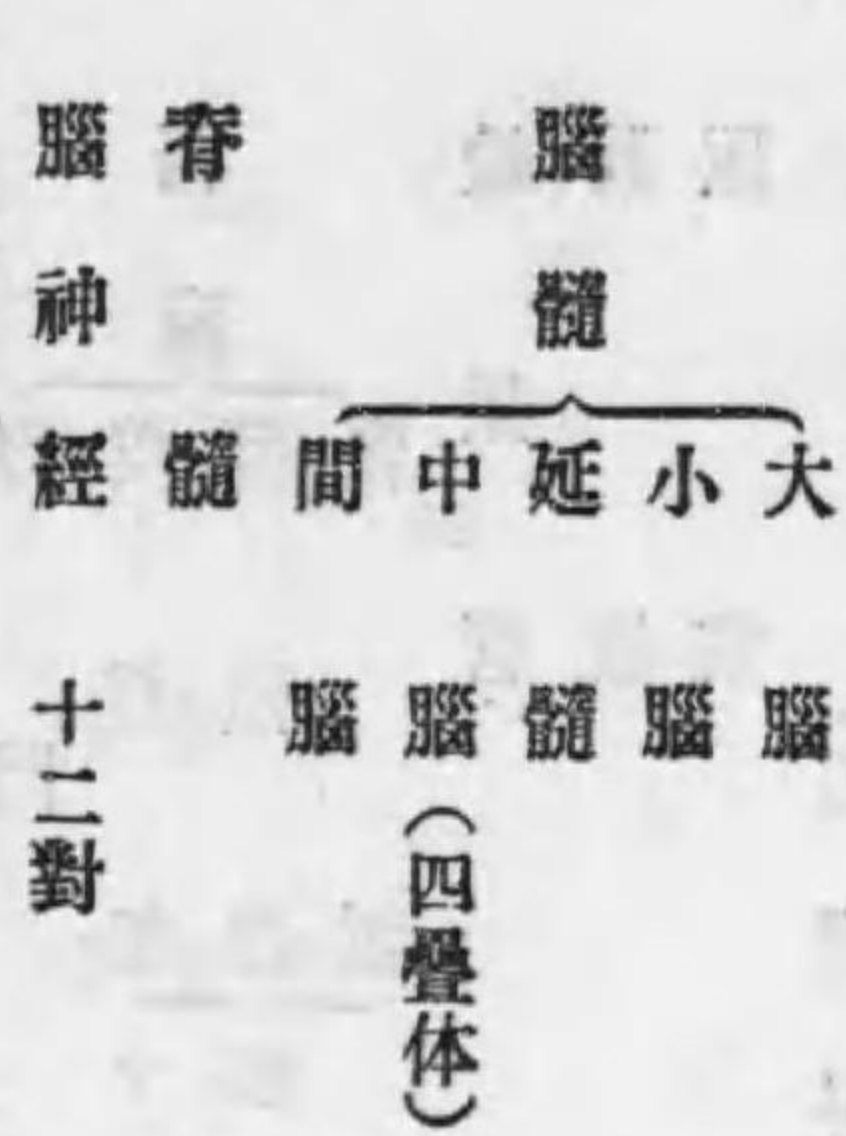 腦髓
大腦
小腦
延髓
中腦(四疊体)
間腦
脊髓
腦神經 十二對